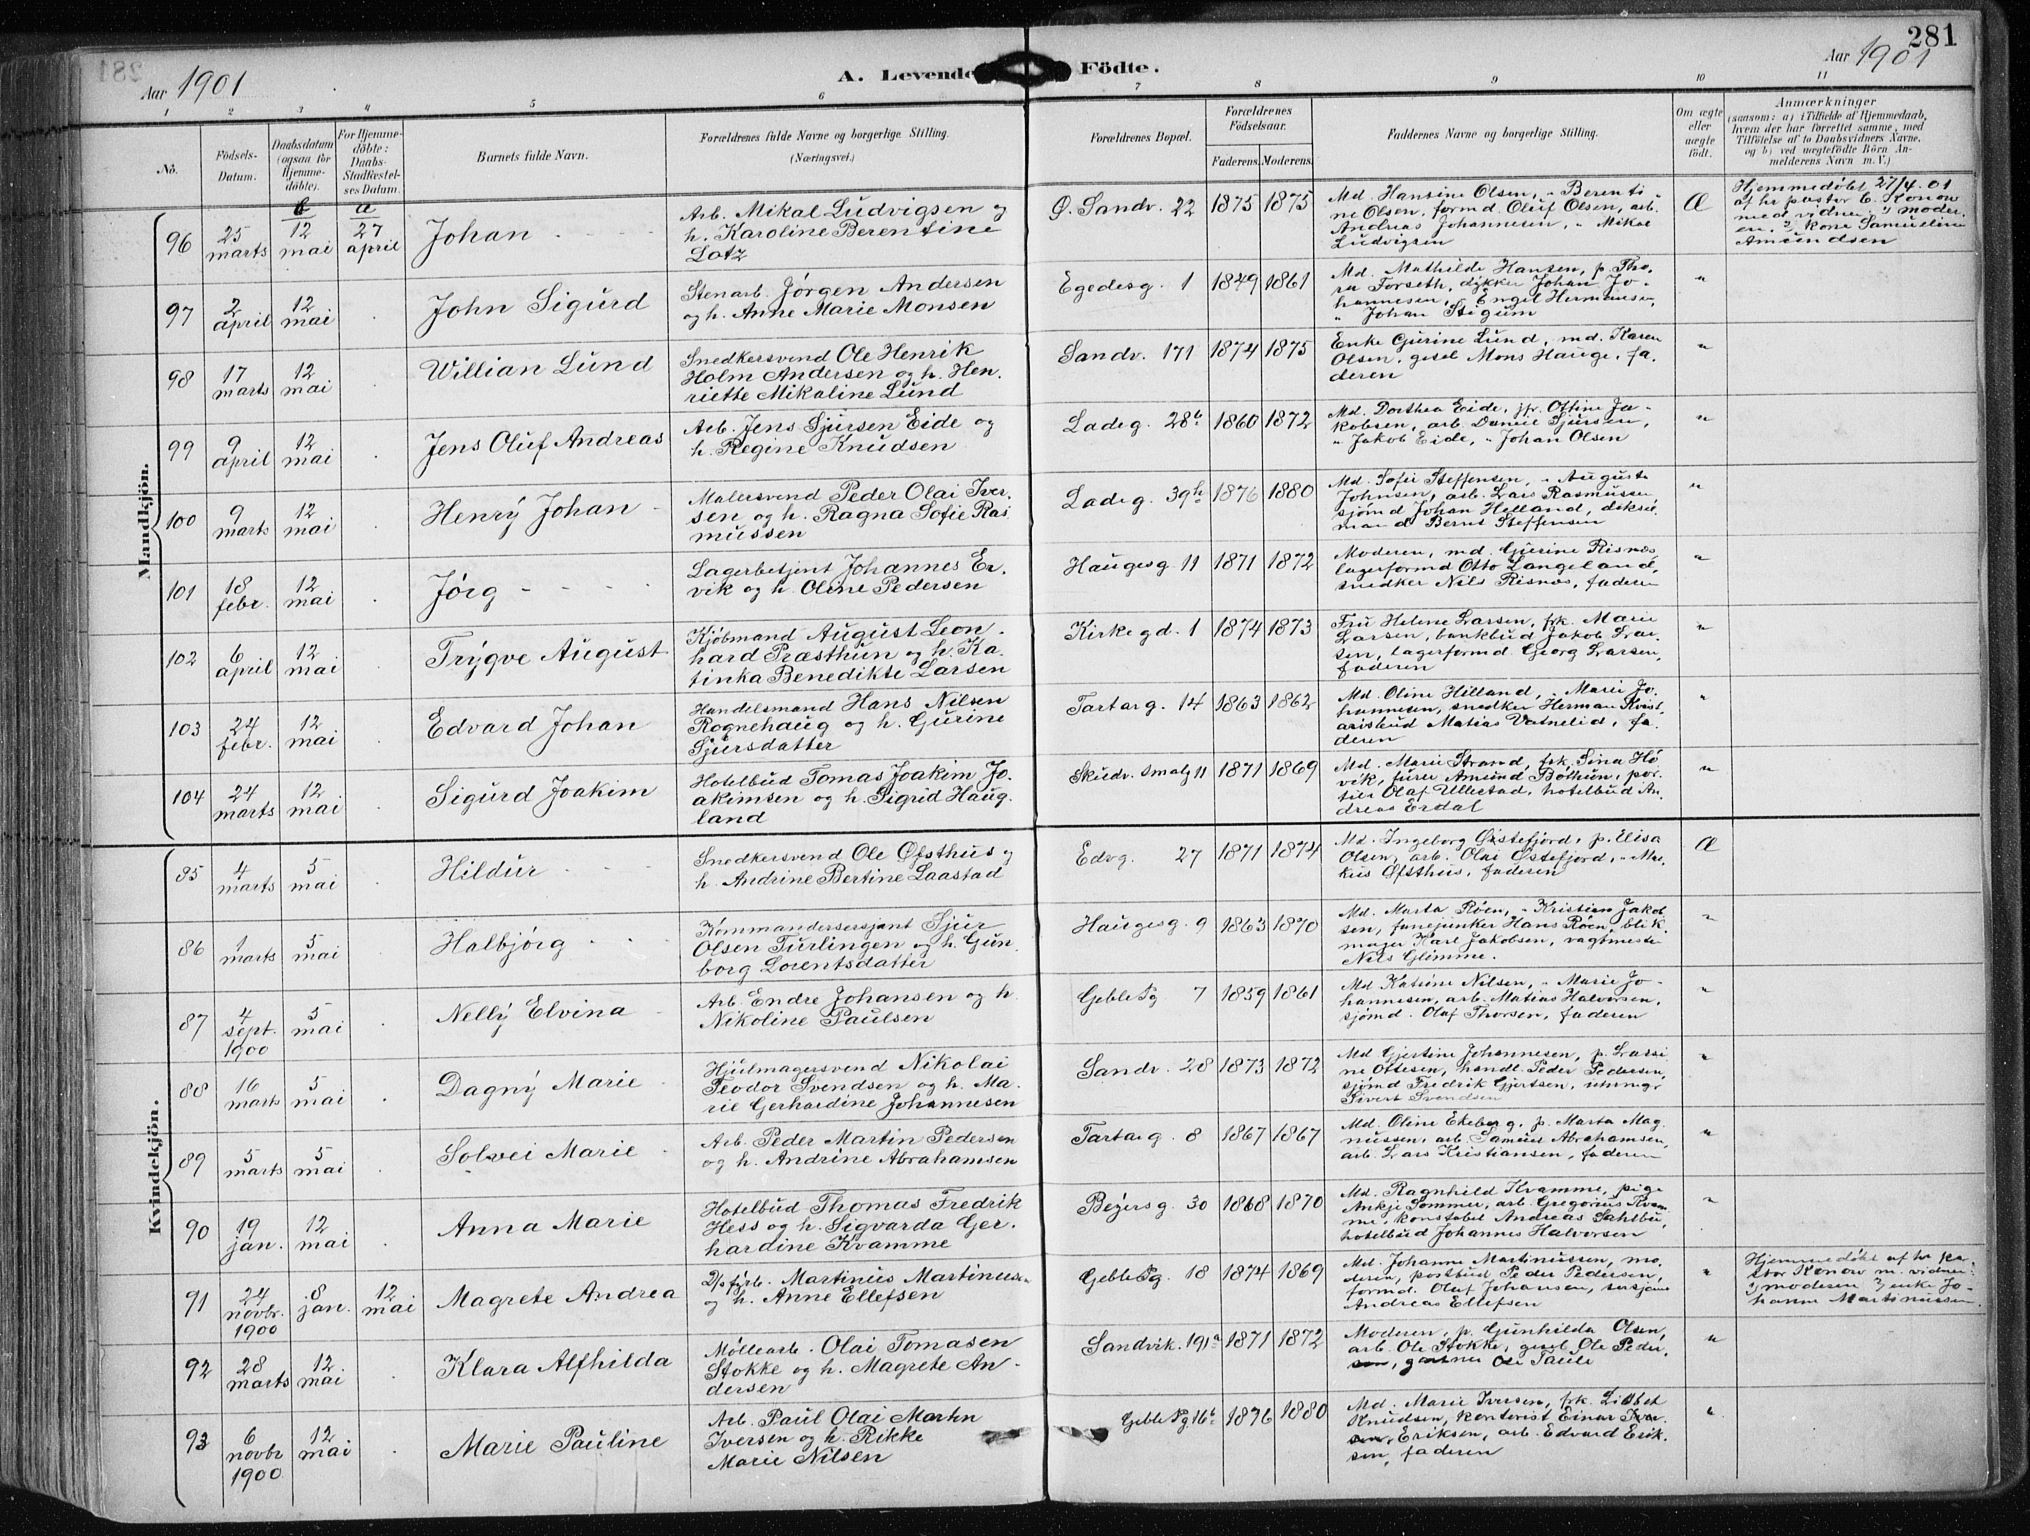 281
Aar 1901
A. Levende Födte.
Aar 1901
1 2 3 4 5 6 7 8 9 10 11
No.
Födsels-Datum.
Daabsdatum (ogsaa for Hjemme-döbte).
For Hjemme-döbte: Daabs-Stadfæstel-ses Datum.
Barnets fulde Navn.
Forældrenes fulde Navne og borgerlige Stilling.
(Næringsvei.)
Forældrenes Bopæl.
Forældrenes Födselsaar.
Faderens. Moderens.
Faddernes Navne og borgerlige Stilling.
Om ægte eller uægte födt.
Anmærkninger
(saasom: a) i Tilfælde af Hjemmedaab,
hvem der har forrettet samme, med
Tilföielse af to Daabsvidners Navne.
og b) ved uægtefödte Börn An-
melderens Navn m. V.)
Mandkjön.
b a
96 25 marts 12 mai 27 april Johan
Arb. Mikal Ludvigsen og
h. Karoline Berentine
Lotz
Ø. Sandv. 22 1875 1875
Md. Hansine Olsen, " Berenti-
ne Olsen, formd. Oluf Olsen, arb.
Andreas Johannesen, " Mikal
Ludvigsen
Æ
Hjemmedøbt 27/4. 01
af hr pastor C. Konow
med vidner 1) moder-
en. 2) kone Samueline
Amundsen
97 2 april 12 mai John Sigurd
Stenarb. Jørgen Andersen
og h. Anne Marie Monsen
Egedesg. 1 1849 1861
Md. Mathilde Hansen, p. Tho-
ra Forseth, dykker Johan Jo-
hannesen, " Engel Hermansen,
" Johan Stigum
"
98 17 marts 12 mai Willian Lund
Snedkersvend Ole Henrik
Holm Andersen og h. Hen-
riette Mikaline Lund
Sandv. 171 1874 1875
Enke Gurine Lund, md. Karen
Olsen, gesel Mons Hauge, fa-
deren
"
99 9 april 12 mai Jens Oluf Andreas
Arb. Jens Sjursen Eide og
h. Regine Knudsen
Ladeg. 28b 1860 1872
Md. Dorthea Eide, jfr. Ottine Ja-
kobsen, arb. Daniel Sjursen,
" Jakob Eide, " Johan Olsen
"
100 9 marts 12 mai Henry Johan
Malersvend Peder Olai Iver-
sen og h. Ragna Sofie Ras
mussen
Ladeg. 39h 1876 1880
Md. Sofie Steffensen, " Augusta
Johnsen, arb. Lars Rasmussen,
sjømd Johan Helland, dæks-
mand Bernt Steffensen
"
101 18 febr. 12 mai Jørg
Lagerbetjent Johannes Er-
vik og h. Oline Pedersen
Haugesg. 11 1871 1872
Moderen, md. Gurine Risnæs
lagerformd Otto Langeland,
snedker Nils Risnæs, faderen
"
102 6 april 12 mai Trygve August
Kjøbmand August Leon-
hard Præsthun og h. Ka-
tinka Benedikte Larsen
Kirkegd. 1 1874 1873
Fru Helene Larsen, frk. Marie
Larsen, bankbud Jakob Lar-
sen, lagerformd. Georg Larsen,
faderen
"
103 24 febr. 12 mai Edvard Johan
Handelsmand Hans Nilsen
Rognehaug og h. Gurine
Sjursdatter
Tartarg. 14 1863 1862
Md. Oline Hilland, " Marie Jo-
hannesen, snedker Herman Kvist
avisbud Matias Vatnelid, fa-
deren
"
104 24 marts 12 mai Sigurd Joakim
Hotelbud Tomas Joakim Jo-
akimsen og h. Sigrid Haug-
land
Skudv. smalg 11 1871 1869
Md. Marie Strand, frk. Sina Hø
vik, furer Amund Bolhun, por-
tier Olaf Ullestad, hotelbud An-
dreas Erdal
"
Kvindekjön.
85 4 marts 5 mai Hildur
Snedkersvend Ole Øfsthus og
h. Andrine Bertine Laastad
Edvg. 27 1871 1874
Md. Ingeborg Østefjord, p. Elisa
Olsen, arb. Olai Østefjord, " Mar-
kus Øfsthus, faderen
Æ
86 1 marts 5 mai Halbjørg
Kommandersersjant Sjur
Olsen Turlingen og h. Gun-
borg Lorentsdatter
Haugesg. 9 1863 1870
Md. Marta Røen, " Kristian Jakob
sen, fanejunker Hans Røen, blik-
mager Karl Jakobsen, vagtmester
Nils Glimme.
"
87 4 sept. 1900 5 mai Nelly Elvina
Arb. Endre Johansen og h.
Nikoline Paulsen
Geble Pg 7 1859 1861
Md Katrine Nilsen, " Marie Jo-
hannesen, arb. Matias Halvorsen,
sjømd. Olaf Thorsen, faderen
"
88 16 marts 5 mai Dagny Marie
Hjulmagersvend Nikolai
Teodor Svendsen og h. Ma-
rie Gerhardine Johannesen
Sandv. 28 1873 1872
Md Gjertine Johannesen, p. Lassi-
ne Ottesen, handl. Peder Pedersen,
sjømd Fredrik Gjertsen, urmgr
Sivert Svendsen
"
89 5 marts 5 mai Solvei Marie
Arb. Peder Martin Pedersen
og h. Andrine Abrahamsen
Tartarg. 8 1867 1867
Md. Oline Ekeberg, p. Marta Mag-
nussen, arb. Samuel Abrahamsen,
arb. Lars Kristiansen, faderen
"
90 19 jan. 12 mai Anna Marie
Hotelbud Thomas Fredrik
Hess og h. Sigvarda Ger-
hardine Kvamme
Beyersg. 30 1868 1870
Md. Ragnhild Kvamme, pige
Ankje Sommer, arb. Gregorius Kvam-
me, konstabel Andreas Sahlbu,
hotelbud Johannes Halvorsen
"
91 24 novbr. 1900 8 jan. 12 mai Magrete Andrea
D/sfyrb. Martinus Martinusen
og h. Anne Ellefsen
Geble Pg. 18 1874 1869
Md. Johanne Martinussen, mo-
deren, postbud Peder Pedersen,
formd. Oluf Johansen, sersjant
Andreas Ellefsen
"
Hjemmedøbt af hr pa-
stor Konow m. vidner:
1) moderen 2) enke Jo-
hanne Martinussen
92 28 marts 12 mai Klara Alfhilda
Møllearb. Olai Tomasen
Stokke og h. Magrete An-
dersen
Sandvik. 191a 1871 1872
Moderen, p. Gunhilda Olsen,
arb. Ole Stokke, gesel Ole Peder-
sen, gartner Ole Taule
"
93 6 novbr 1900 12 mai Marie Pauline
Arb. Paul Olai Martin
Iversen og h. Rikke
Marie Nilsen
Geble Pg 16b 1876 1880
Md. Marie Iversen, frk. Lisbet
Knudsen, kontorist Einar
Eriksen, arb. Edvard Erik-
sen, faderen
"